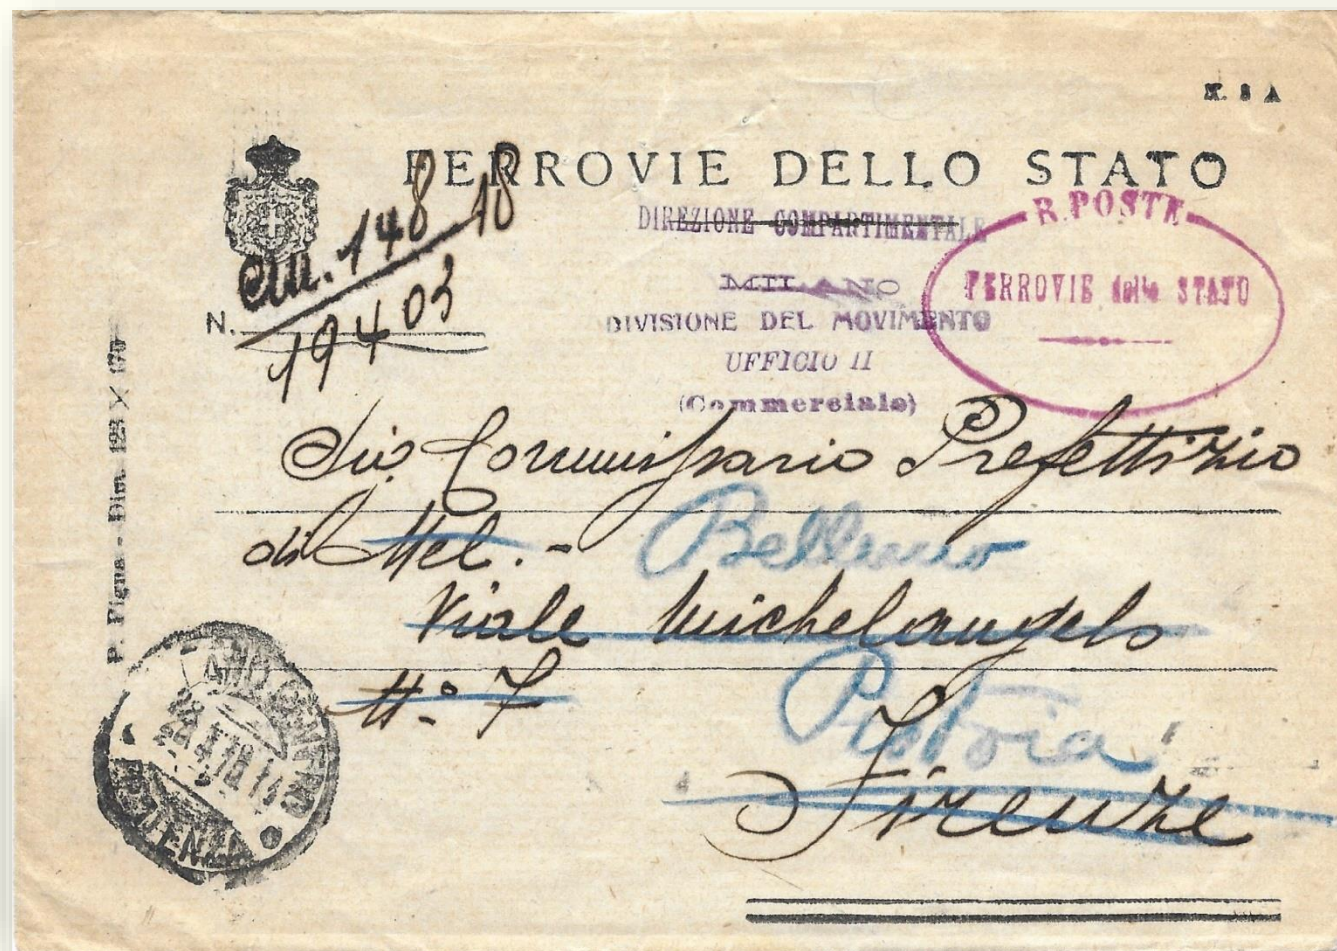 M. 8 A
FERROVIE DELLO STATO
DIREZIONE COMPARTIMENTALE
MILANO
DIVISIONE DEL MOVIMENTO
UFFICIO II
(Commerciale)
R. POSTE
FERROVIE dello STATO
148 18
N. 19403
Commissario Prefettizio
di Mel. - Belluno
Viale Michelangelo
N.º 7 Pistoia
Firenze
P. Figna - Dim. 123 X 176
PARTENZA